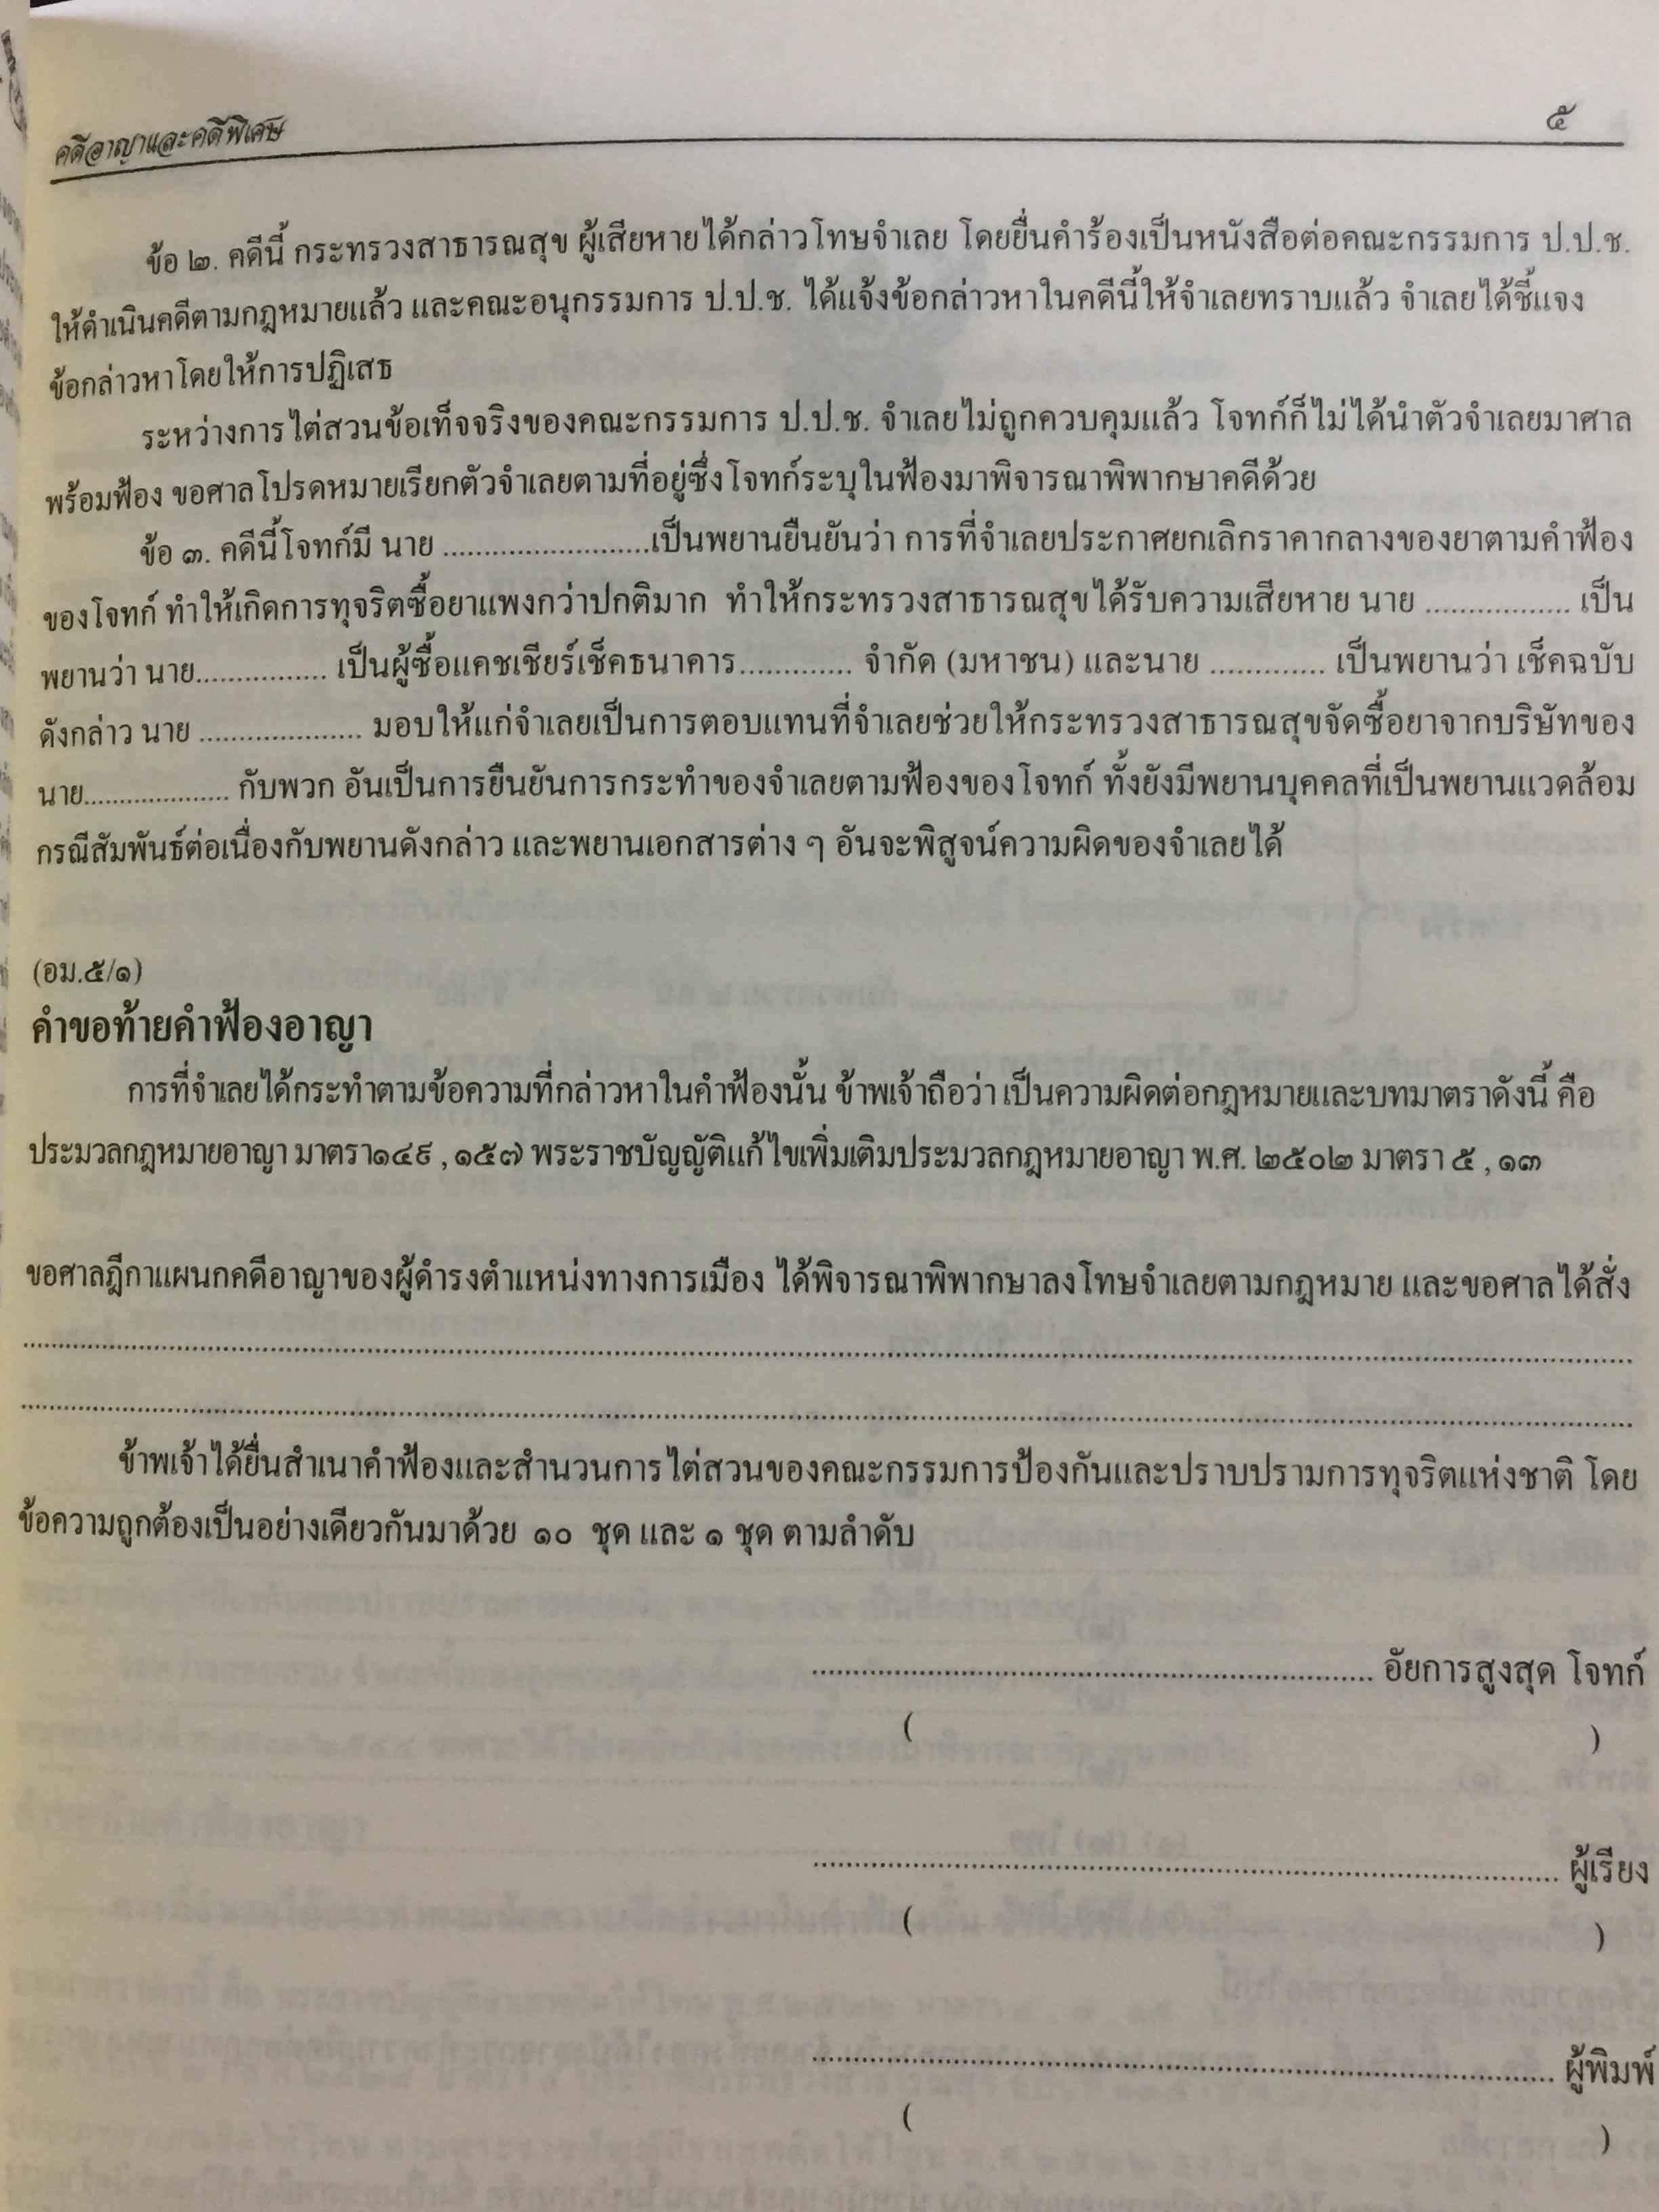 คดีอาญาและคดีพิเศษ ๕
ข้อ ๒. คดีนี้ กระทรวงสาธารณสุข ผู้เสียหายได้กล่าวโทษจำเลย โดยยื่นคำร้องเป็นหนังสือต่อคณะกรรมการ ป.ป.ช.
ให้ดำเนินคดีตามกฎหมายแล้ว และคณะอนุกรรมการ ป.ป.ช. ได้แจ้งข้อกล่าวหาในคดีนี้ให้จำเลยทราบแล้ว จำเลยได้ชี้แจง
ข้อกล่าวหาโดยให้การปฏิเสธ
ระหว่างการไต่สวนข้อเท็จจริงของคณะกรรมการ ป.ป.ช. จำเลยไม่ถูกควบคุมแล้ว โจทก์ก็ไม่ได้นำตัวจำเลยมาศาล
พร้อมฟ้อง ขอศาลโปรดหมายเรียกตัวจำเลยตามที่อยู่ซึ่งโจทก์ระบุในฟ้องมาพิจารณาพิพากษาคดีด้วย
ข้อ ๓. คดีนี้โจทก์มี นาย .........................เป็นพยานยืนยันว่า การที่จำเลยประกาศยกเลิกราคากลางของยาตามคำฟ้อง
ของโจทก์ ทำให้เกิดการทุจริตซื้อยาแพงกว่าปกติมาก ทำให้กระทรวงสาธารณสุขได้รับความเสียหาย นาย .................. เป็น
พยานว่า นาย................ เป็นผู้ซื้อแคชเชียร์เช็คธนาคาร.............. จำกัด (มหาชน) และนาย .............. เป็นพยานว่า เช็คฉบับ
ดังกล่าว นาย .................... มอบให้แก่จำเลยเป็นการตอบแทนที่จำเลยช่วยให้กระทรวงสาธารณสุขจัดซื้อยาจากบริษัทของ
นาย..................... กับพวก อันเป็นการยืนยันการกระทำของจำเลยตามฟ้องของโจทก์ ทั้งยังมีพยานบุคคลที่เป็นพยานแวดล้อม
กรณีสัมพันธ์ต่อเนื่องกับพยานดังกล่าว และพยานเอกสารต่าง ๆ อันจะพิสูจน์ความผิดของจำเลยได้
(อม.๕/๑)
คำขอท้ายคำฟ้องอาญา
การที่จำเลยได้กระทำตามข้อความที่กล่าวหาในคำฟ้องนั้น ข้าพเจ้าถือว่า เป็นความผิดต่อกฎหมายและบทมาตราดังนี้ คือ
ประมวลกฎหมายอาญา มาตรา๑๔๙ , ๑๕๗ พระราชบัญญัติแก้ไขเพิ่มเติมประมวลกฎหมายอาญา พ.ศ. ๒๕๐๒ มาตรา ๕ , ๑๓
ขอศาลฎีกาแผนกคดีอาญาของผู้ดำรงตำแหน่งทางการเมือง ได้พิจารณาพิพากษาลงโทษจำเลยตามกฎหมาย และขอศาลได้สั่ง
................................................................................
................................................................................
ข้าพเจ้าได้ยื่นสำเนาคำฟ้องและสำนวนการไต่สวนของคณะกรรมการป้องกันและปราบปรามการทุจริตแห่งชาติ โดย
ข้อความถูกต้องเป็นอย่างเดียวกันมาด้วย ๑๐ ชุด และ ๑ ชุด ตามลำดับ
................................................................ อัยการสูงสุด โจทก์
( )
................................................................ ผู้เรียง
( )
................................................................ ผู้พิมพ์
( )